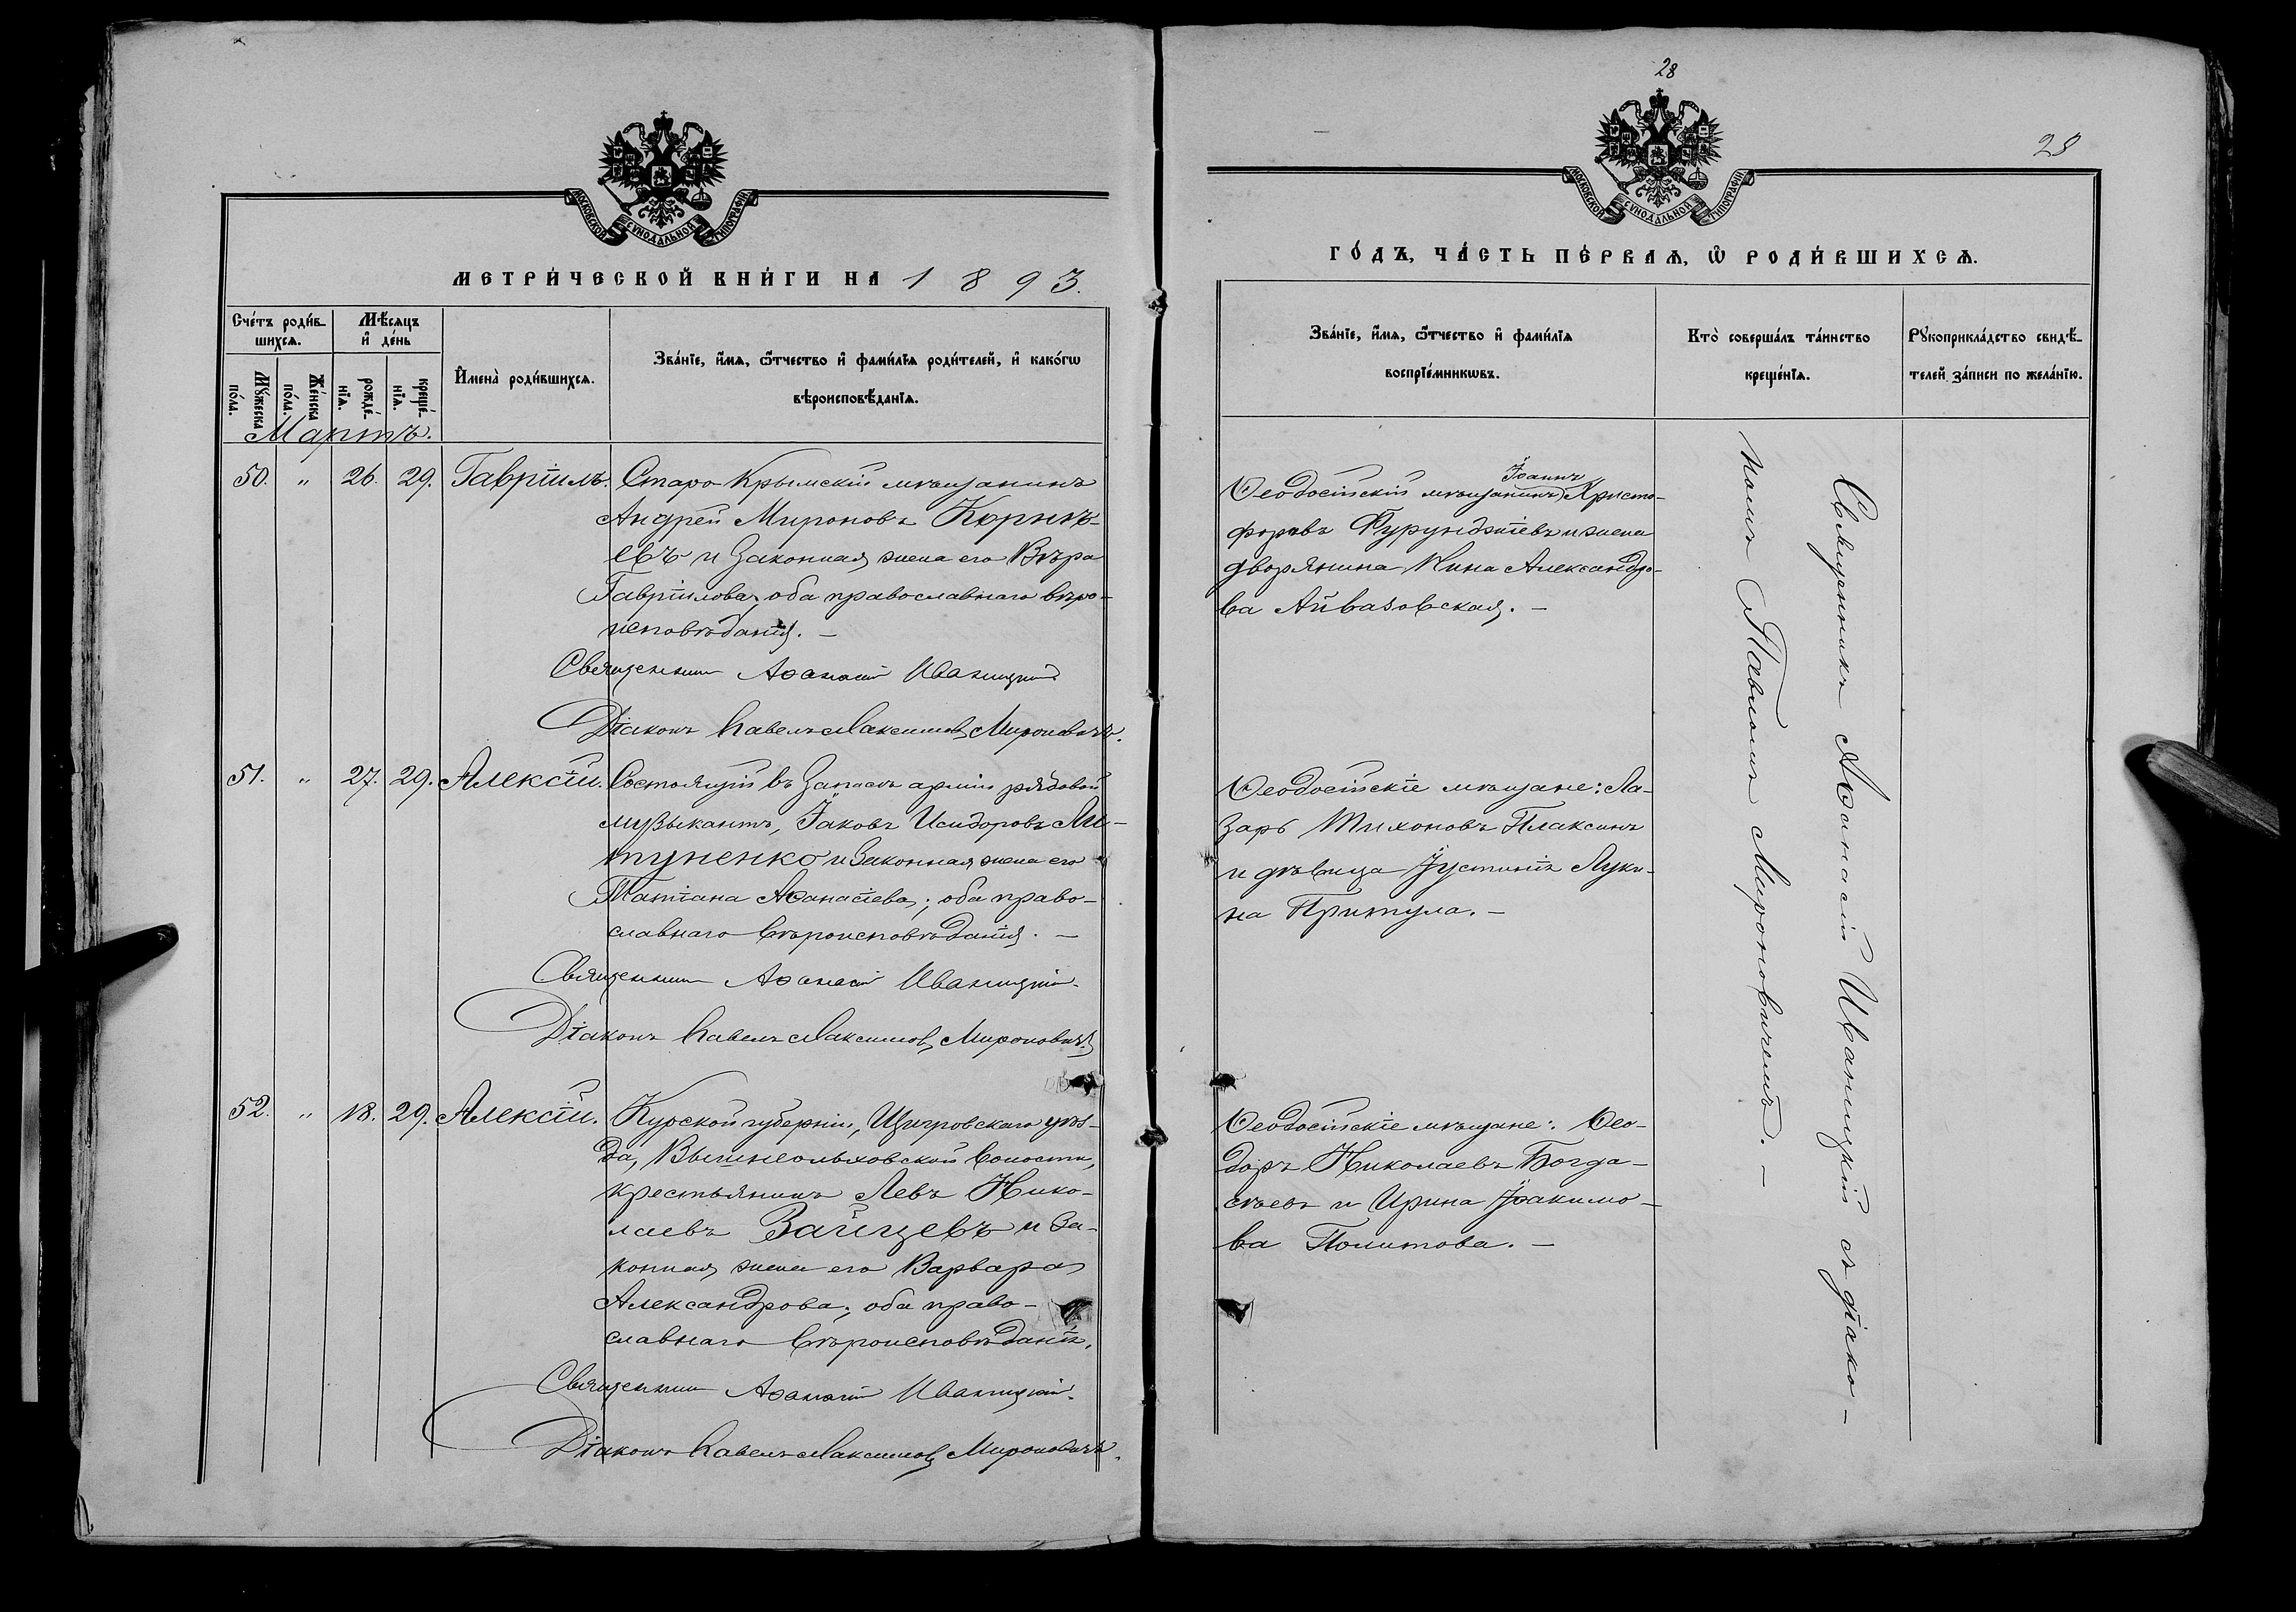 МОСКОВСКОЙ СѴНОДАЛЬНОЙ ТИПОГРАФІИ
МЕТРИ́ЧЕСКОЙ КНИ́ГИ НА 1893.
Сче́тъ роди́вшихсѧ.
Мѣ́сѧцъ и҆ де́нь
Мꙋ́жеска по́ла.
Же́нска по́ла.
рожде́нїѧ.
креще́нїѧ.
И҆мена̀ роди́вшихсѧ.
Зва́нїе, и҆́мѧ, ѻ҆́тчество и҆ фами́лїѧ роди́телей, и҆ како́гѡ
вѣроисповѣ́данїѧ.
Мартъ.
50. " 26. 29. Гавріилъ. Старо-Крымскій мѣщанинъ
Андрей Мироновъ Корнѣ-
евъ и законная жена его Вѣра
Гавріилова, оба православнаго вѣро-
исповѣданія. –
Священникъ Аѳанасій Иваницкій
Діаконъ Павелъ Максимовъ Мироновичъ.
51. " 27. 29. Алексій. Состоящій въ запасѣ арміи рядовой
музыкантъ, Іаковъ Исидоровъ Ли-
туненко и законная жена его
Татіана Аѳанасіева; оба право-
славнаго вѣроисповѣданія. –
Священникъ Аѳанасій Иваницкій.
Діаконъ Павелъ Максимовъ Мироновичъ.
52. " 18. 29. Алексій. Курской губерніи, Щигровскаго уѣз-
да, Вышнеольховской волости,
крестьянинъ Левъ Нико-
лаевъ Зайцевъ и за-
конная жена его Варвара
Александрова; оба право-
славнаго вѣроисповѣданія.
Священникъ Аѳанасій Иваницкій.
Діаконъ Павелъ Максимовъ Мироновичъ.
28
28
МОСКОВСКОЙ СѴНОДАЛЬНОЙ ТИПОГРАФІИ
ГО́ДЪ, ЧА́СТЬ ПЕ́РВАѦ, Ѡ҆ РОДИ́ВШИХСѦ.
Зва́нїе, и҆́мѧ, ѻ҆́тчество и҆ фами́лїѧ
воспрїе́мникѡвъ.
Кто̀ соверша́лъ та́инство
креще́нїѧ.
Рꙋкоприкла́дство свидѣ́-
телей за́писи по жела́нїю.
Іоаннъ
Ѳеодосійскій мѣщанинъ Христо-
форовъ Фурунджіевъ и жена
дворянина Нина Александро-
ва Айвазовская. –
Ѳеодосійскіе мѣщане: Ла-
зарь Тихоновъ Плаксинъ
и дѣвица Іустинія Луки-
на Притула. –
Ѳеодосійскіе мѣщане: Ѳео-
доръ Николаевъ Богда-
сѣевъ и Ирина Іоакимо-
ва Политова. –
Священникъ Аѳанасій Иваницкій съ діако-
номъ Павломъ Мироновичемъ. –